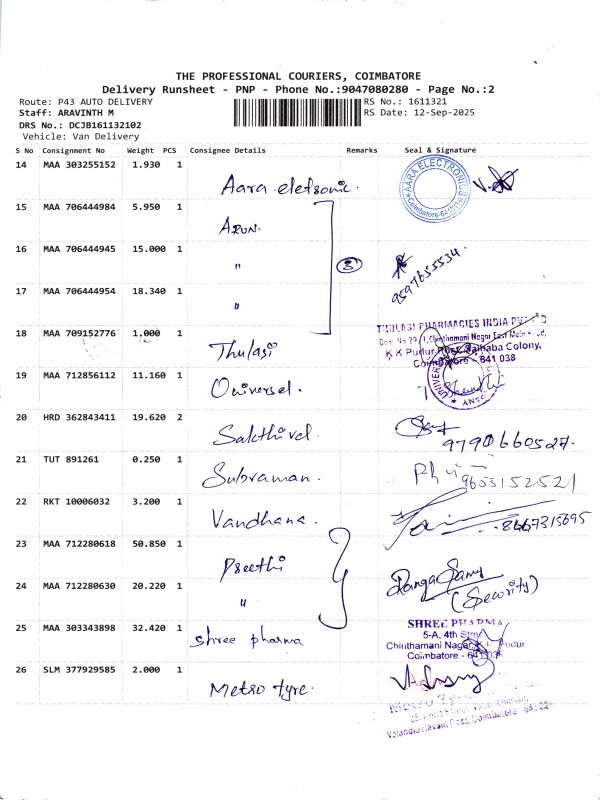 THE PROFESSIONAL COURIERS, COIMBATORE
Delivery Runsheet - PNP - Phone No.:9047080280 - Page No.:2
Route: P43 AUTO DELIVERY
RS No.: 1611321
Staff: ARAVINTH M
RS Date: 12-Sep-2025
DRS No.: DCJB161132102
Vehicle: Van Delivery
S No Consignment No Weight PCS Consignee Details Remarks Seal & Signature
14 MAA 303255152 1.930 1
Aara eletronic.
AARA ELECTRONICS
Coimbatore
15 MAA 706444984 5.950 1
Arun.
16 MAA 706444945 15.000 1
"
3
9597655534
17 MAA 706444954 18.340 1
"
18 MAA 709152776 1.000 1
Thulasi
THULASI PHARMACIES INDIA PVT LTD
Chinthamani Nagar East Main
K K Pudur Colony,
Coimbatore - 641 038
19 MAA 712856112 11.160 1
Universel.
20 HRD 362843411 19.620 2
Sakthivel.
9790660527.
21 TUT 891261 0.250 1
Subraman.
Ph
9655152521
22 RKT 10006032 3.200 1
Vandhana.
23 MAA 712280618 50.850 1
Preethi
24 MAA 712280630 20.220 1
"
RangaSamy
(Security)
25 MAA 303343898 32.420 1
Shree pharma
SHREE PHARMA
5-A, 4th Street
Chinthamani Nagar, K K Pudur
Coimbatore -
26 SLM 377929585 2.000 1
Metro tyre.